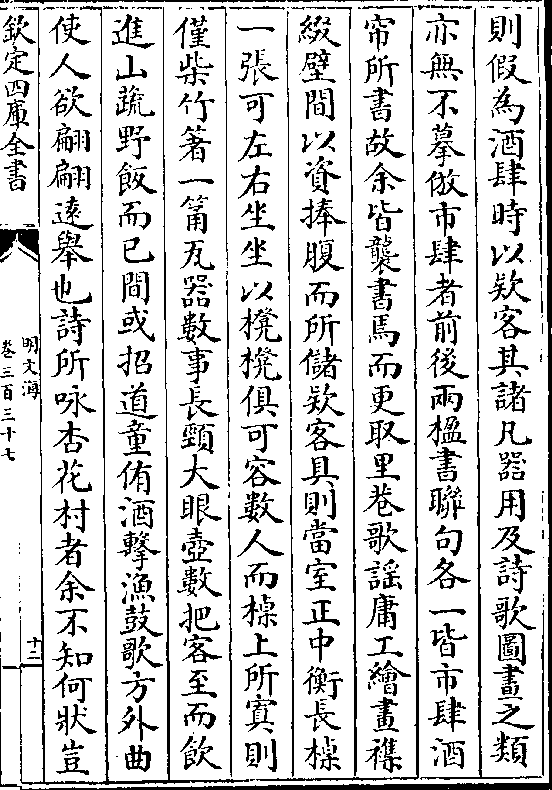 則假為酒肆時以欵客其諸凡器用及詩歌圖畫之類
亦無不摹倣市肆者前後兩楹書聯句各一皆市肆酒
帘所書故余皆襲書焉而更取里巷歌謡庸工繪畫襍
綴壁間以資捧腹而所儲欵客具則當室正中衡長槕
一張可左右坐坐以櫈櫈俱可容數人而槕上所寘則
僅柴竹箸一筩瓦器數事長頸大眼壺數把客至而飲
進山蔬野飯而已間或招道童侑酒擊漁鼓歌方外曲
使人欲翩翩逺舉也詩所咏杏花村者余不知何狀豈
欽定四庫全書
明文海
卷三百三十七
十二